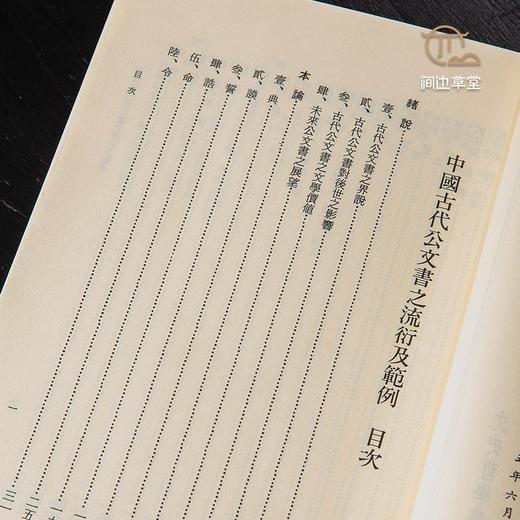 涧边草堂
年六月
中國古代公文書之流衍及範例 目次
緒說
壹、古代公文書之界說
貳、古代公文書對後世之影響
叁、古代公文書之文學價值
肆、未來公文書之展望
本論
壹、典
貳、謨
叁、誓
肆、誥
伍、命
陸、令
目次 一